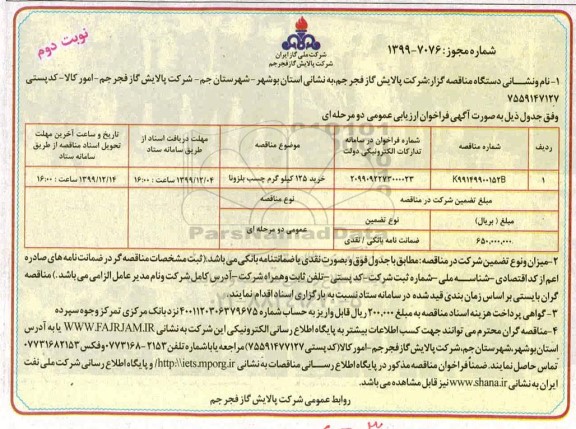 نوبت دوم
شرکت ملی گاز ایران
شرکت پالایش گاز فجر جم
شماره مجوز: ۷۰۷۶-۱۳۹۹
۱- نام ونشانی دستگاه مناقصه گزار: شرکت پالایش گاز فجر جم، به نشانی استان بوشهر - شهرستان جم - شرکت پالایش گاز فجر جم - امور کالا - کد پستی
۷۵۵۹۱۴۷۱۲۷
وفق جدول ذیل به صورت آگهی فراخوان ارزیابی عمومی دو مرحله ای
ردیف
شماره مناقصه
شماره فراخوان در سامانه تدارکات الکترونیکی دولت
موضوع مناقصه
مهلت دریافت اسناد از طریق سامانه ستاد
تاریخ و ساعت آخرین مهلت تحویل اسناد مناقصه از طریق سامانه ستاد
۱
K۹۹۱۴۹۹۰۰۱۵۲B
۲۰۹۹۰۹۲۲۷۳۰۰۰۰۲۳
خرید ۱۲۵ کیلو گرم چسب بلزونا
۱۳۹۹/۱۲/۰۴ ساعت : ۱۶:۰۰
۱۳۹۹/۱۲/۱۴ ساعت : ۱۶:۰۰
مبلغ تضمین شرکت در مناقصه
نوع مناقصه
مبلغ ( بریال)
نوع تضمین
عمومی دو مرحله ای
۶۵۰,۰۰۰,۰۰۰
ضمانت نامه بانکی / نقدی
ParsNamadData
۲- میزان ونوع تضمین شرکت در مناقصه: مطابق با جدول فوق وبصورت نقدی یا ضمانتنامه بانکی می باشد. (ثبت مشخصات مناقصه گر در ضمانت نامه های صادره
اعم از کد اقتصادی - شناسه ملی - شماره ثبت شرکت - کد پستی - تلفن ثابت وهمراه شرکت - آدرس کامل شرکت ونام مدیر عامل الزامی می باشد.) مناقصه
گران بایستی بر اساس زمان بندی قید شده در سامانه ستاد نسبت به بارگزاری اسناد اقدام نمایند.
۳- گواهی پرداخت هزینه اسناد مناقصه به مبلغ ۲۰۰,۰۰۰ ریال قابل واریز به حساب شماره ۴۰۰۱۱۲۰۳۰۶۳۷۹۶۷۵ نزد بانک مرکزی تمرکز وجوه سپرده
۴- مناقصه گران محترم می توانند جهت کسب اطلاعات بیشتر به پایگاه اطلاع رسانی الکترونیکی این شرکت به نشانی WWW.FAJRJAM.IR یا به آدرس
استان بوشهر، شهرستان جم، شرکت پالایش گاز فجر جم - امور کالا (کد پستی ۷۵۵۹۱۴۷۱۲۷) مراجعه یا باشماره تلفن ۲۱۵۳-۰۷۷۳۱۶۸ وفکس ۰۷۷۳۱۶۸۲۱۵۳
تماس حاصل نمایند. ضمناً فراخوان مناقصه مذکور در پایگاه اطلاع رسانی مناقصات به نشانی http:\\iets.mporg.ir/ و پایگاه اطلاع رسانی شرکت ملی نفت
ایران به نشانی www.shana.ir نیز قابل مشاهده می باشد.
روابط عمومی شرکت پالایش گاز فجر جم